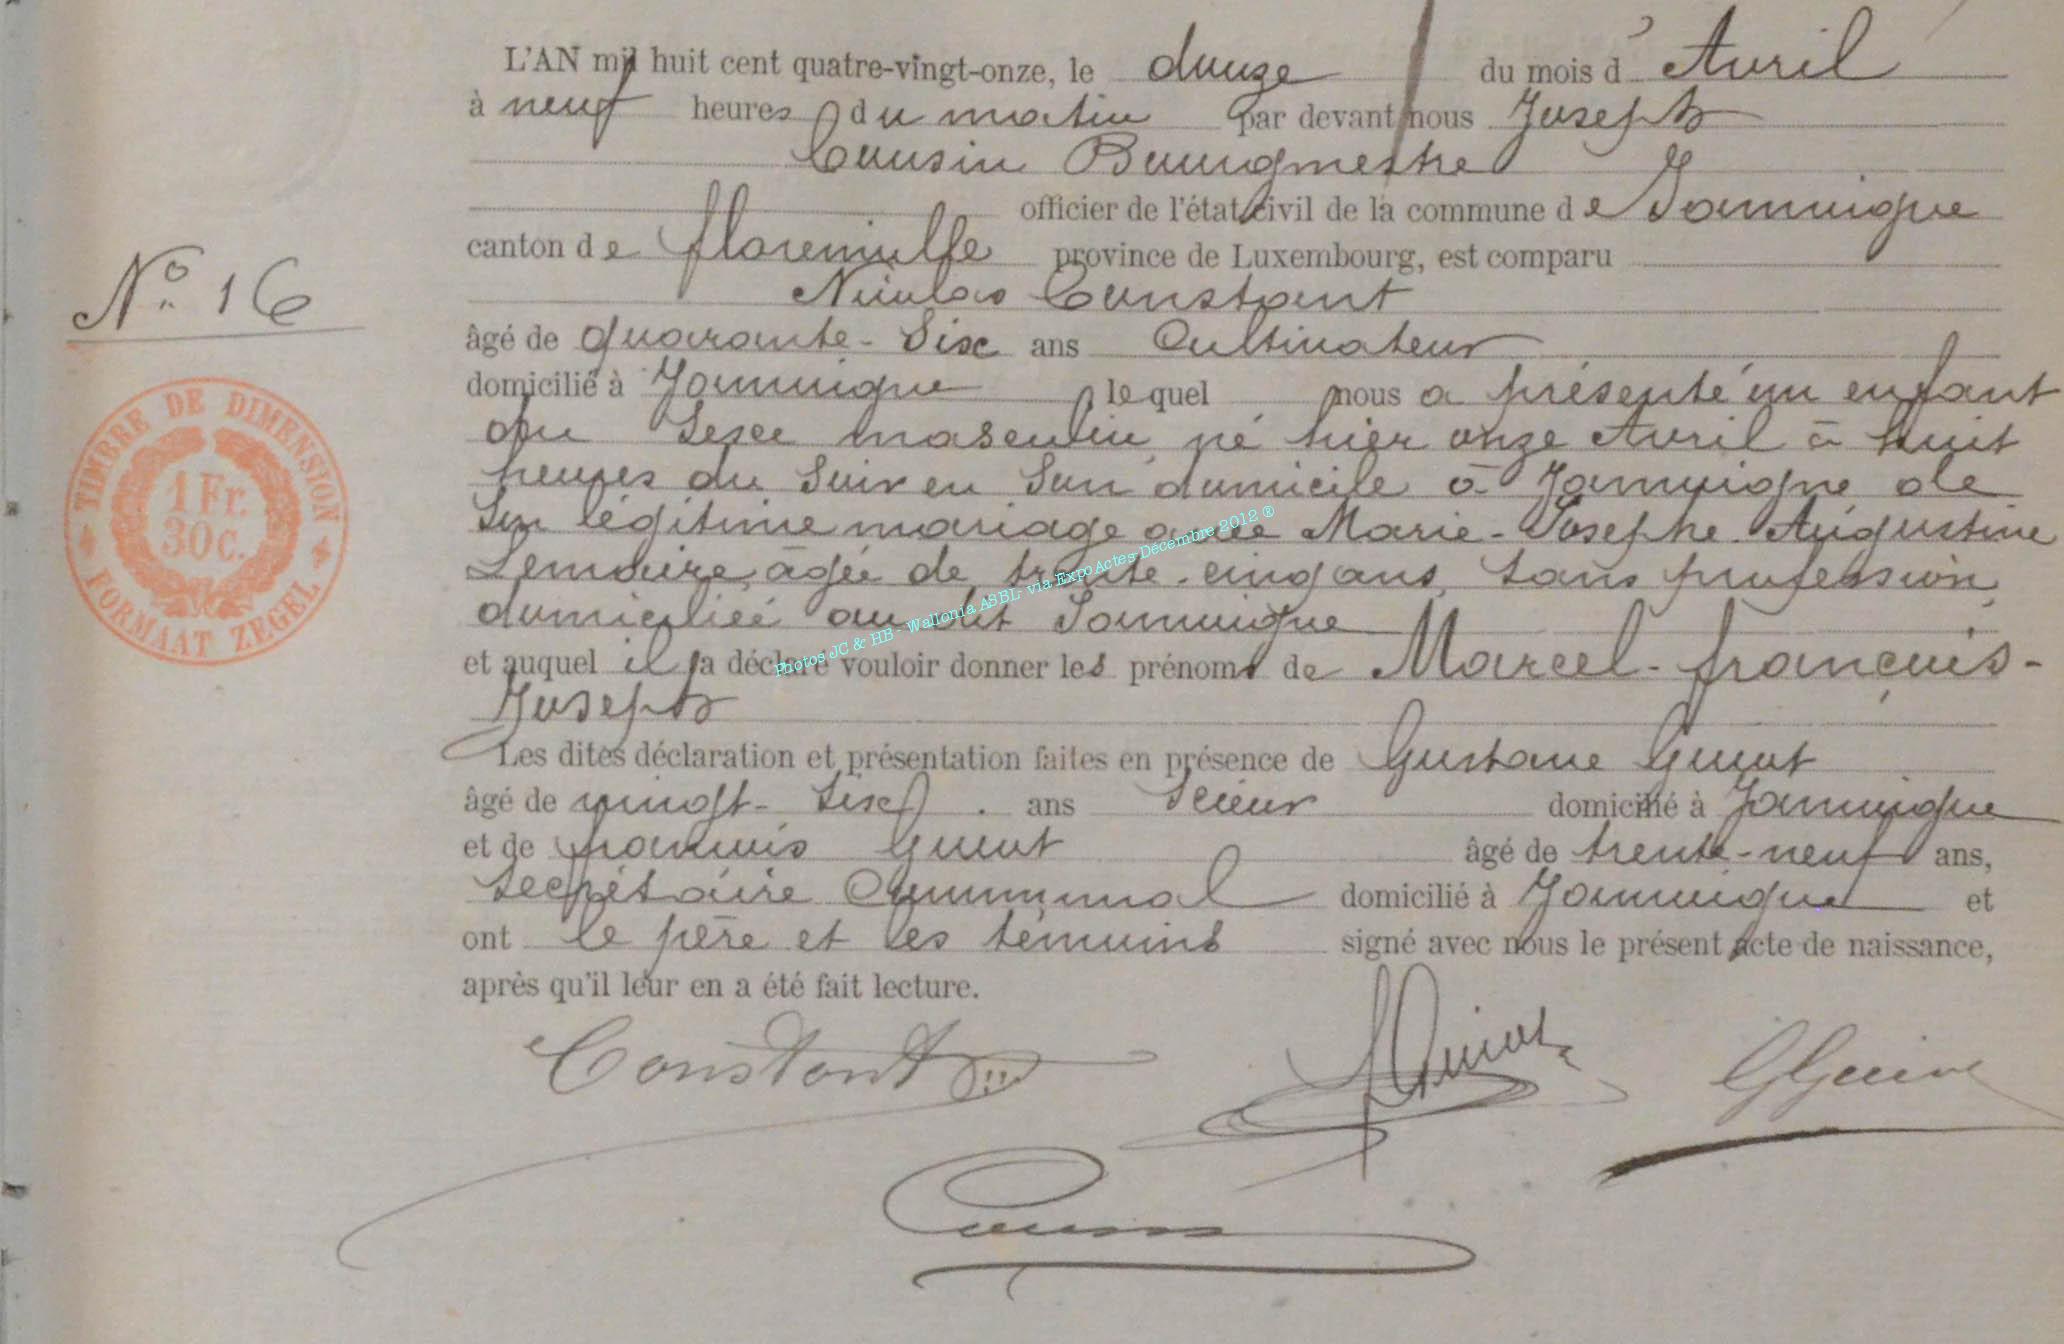 L'AN mil huit cent quatre-vingt-onze, le douze du mois d'Avril
à neuf heures du matin par devant nous Joseph
Cousin Bourgmestre
officier de l'état civil de la commune de Jamoigne
canton de florenville province de Luxembourg, est comparu
Nicolas Constant
N° 16
âgé de quarante-Six ans Cultivateur
domicilié à Jamoigne lequel nous a présenté un enfant
du Sexe masculin, né hier onze Avril à huit
heures du Soir en Son domicile à Jamoigne de
Son légitime mariage avec Marie-Josephe Augustine
Lemaire, âgée de trente-cinq ans, Sans profession,
domiciliée au dit Jamoigne
et auquel il a déclaré vouloir donner les prénoms de Marcel-françois-
Joseph
Les dites déclaration et présentation faites en présence de Gustave Guiot
âgé de vingt-Six ans Scieur domicilié à Jamoigne
et de françois Guiot âgé de trente-neuf ans,
Secrétaire Communal domicilié à Jamoigne et
ont le père et les témoins signé avec nous le présent acte de naissance,
après qu'il leur en a été fait lecture.
TIMBRE DE DIMENSION
1 Fr.
30 C.
FORMAAT ZEGEL
Photos JC & HB - Wallonia ASBL- via ExpoActes-Décembre 2012 ®
Constant
F Guiot
G Guiot
Cousin